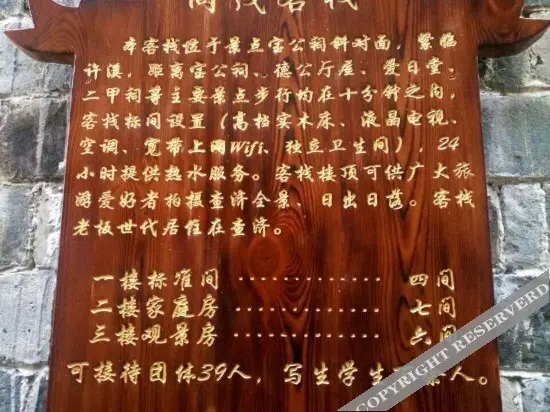 客栈
本客栈位于景点宝公祠斜对面，紧临
许溪，距离宝公祠、德公厅屋、爱日堂、
二甲祠等主要景点步行均在十分钟之内，
客栈标间设置（高档实木床、液晶电视、
空调、宽带上网Wifi、独立卫生间），24
小时提供热水服务。客栈楼顶可供广大旅
游爱好者拍摄查济全景、日出日落。客栈
老板世代居住在查济。
一楼标准间 ·············· 四间
二楼家庭房 ·············· 七间
三楼观景房 ·············· 六间
可接待团体39人，写生学生 人。
COPYRIGHT RESERVED